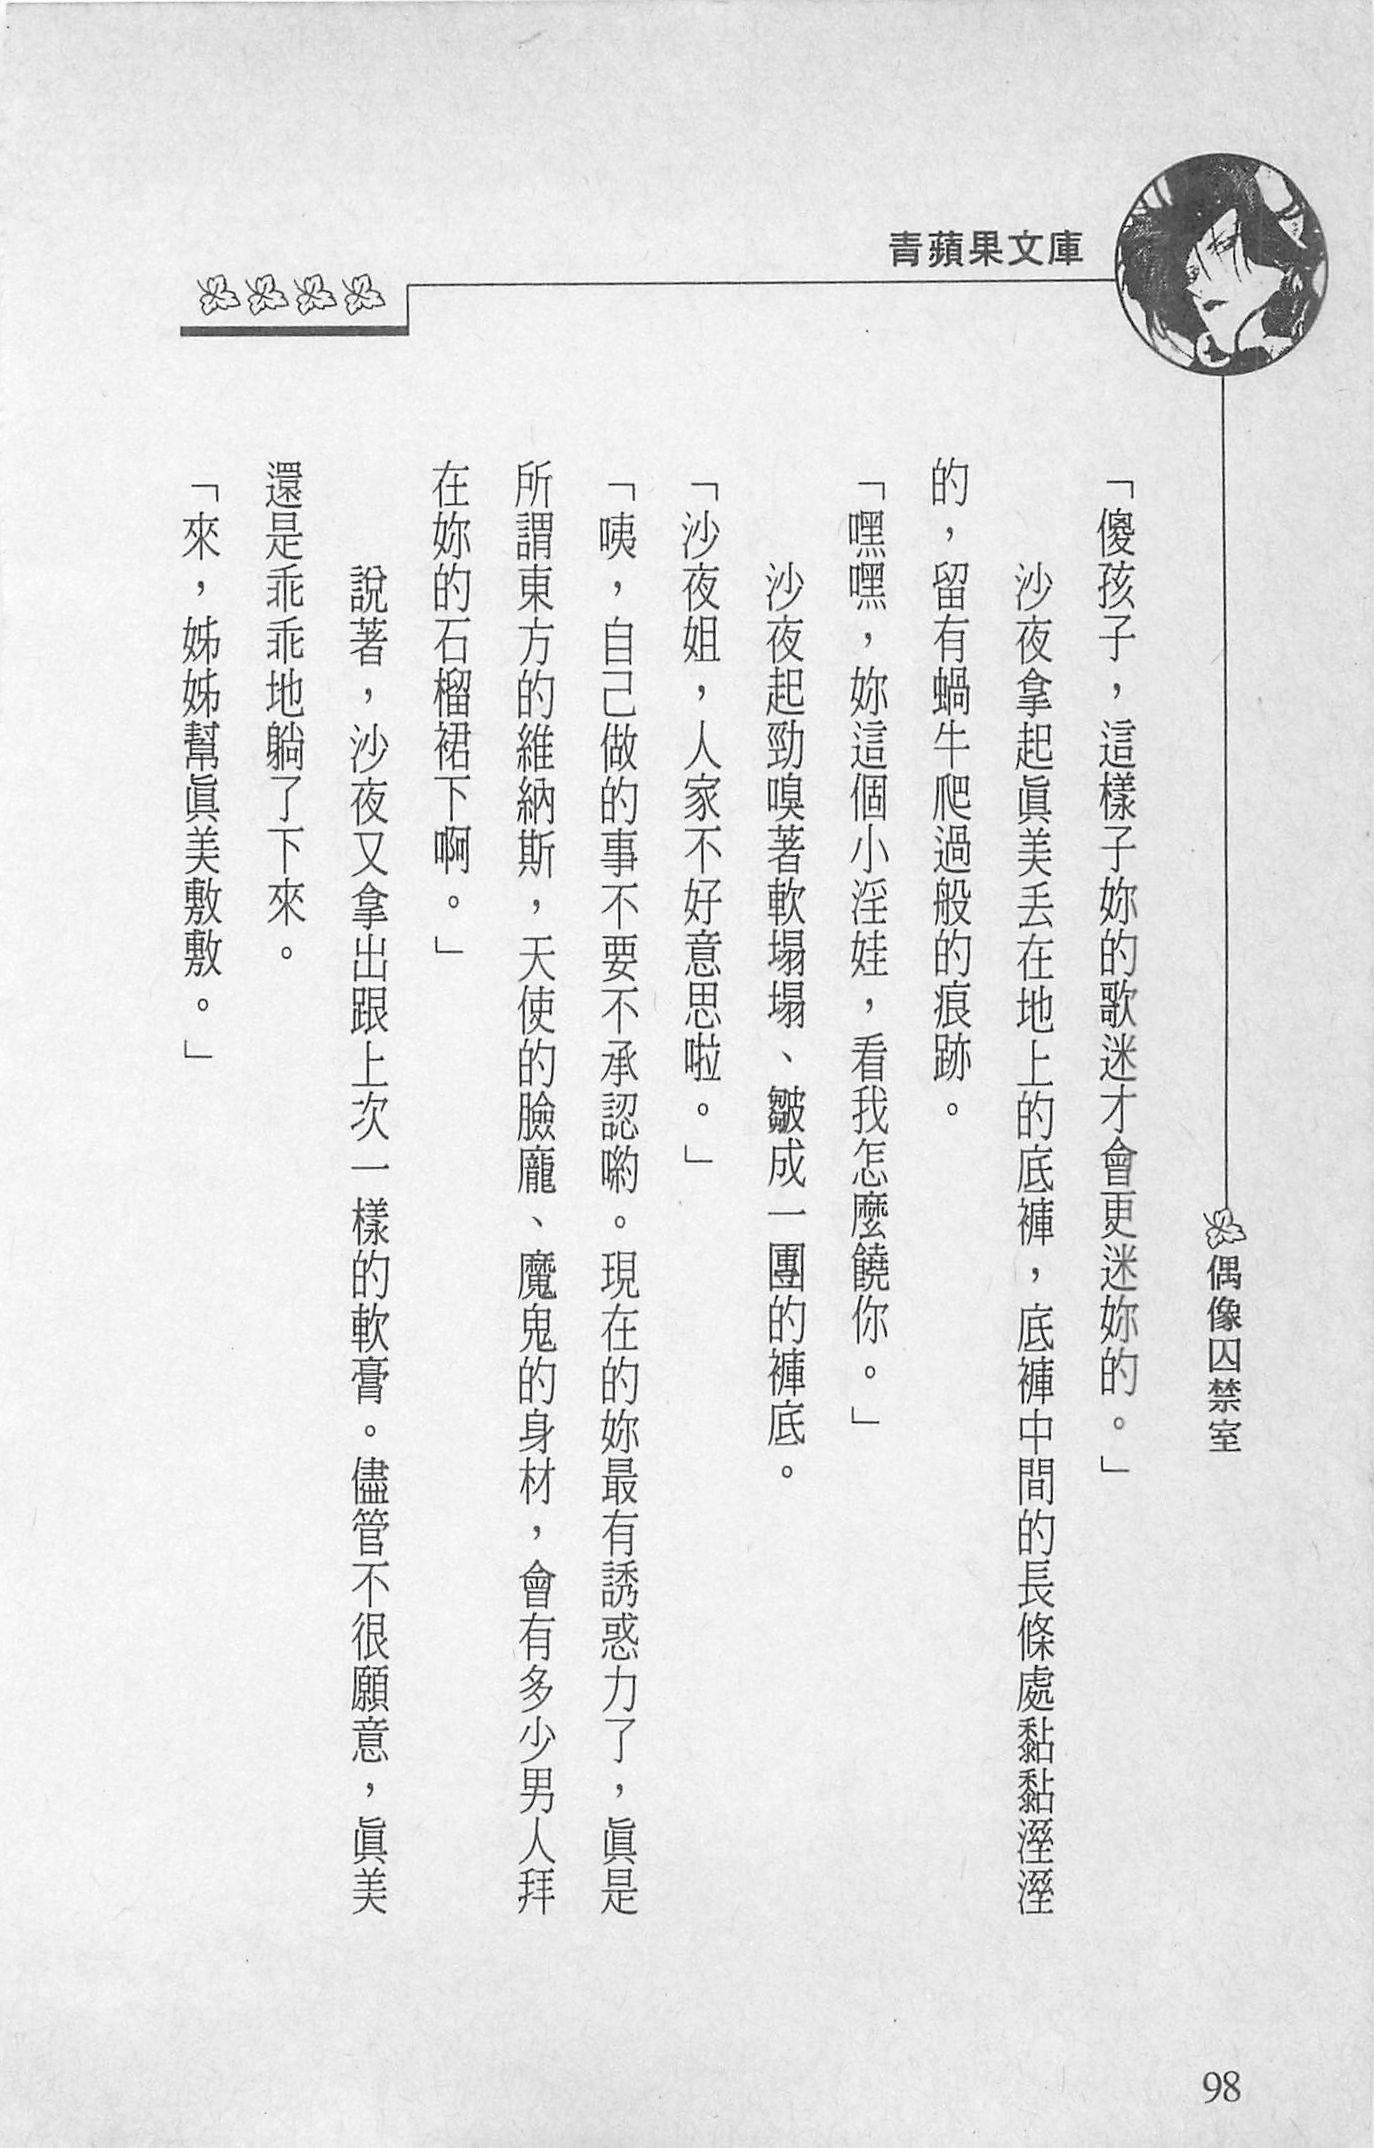 青蘋果文庫
偶像囚禁室
「傻孩子，這樣子妳的歌迷才會更迷妳的。」
沙夜拿起眞美丟在地上的底褲，底褲中間的長條處黏黏溼溼
的，留有蝸牛爬過般的痕跡。
「嘿嘿，妳這個小淫娃，看我怎麼饒你。」
沙夜起勁嗅著軟塌塌、皺成一團的褲底。
「沙夜姐，人家不好意思啦。」
「咦，自己做的事不要不承認喲。現在的妳最有誘惑力了，眞是
所謂東方的維納斯，天使的臉龐、魔鬼的身材，會有多少男人拜
在妳的石榴裙下啊。」
說著，沙夜又拿出跟上次一樣的軟膏。儘管不很願意，眞美
還是乖乖地躺了下來。
「來，姊姊幫眞美敷敷。」
98